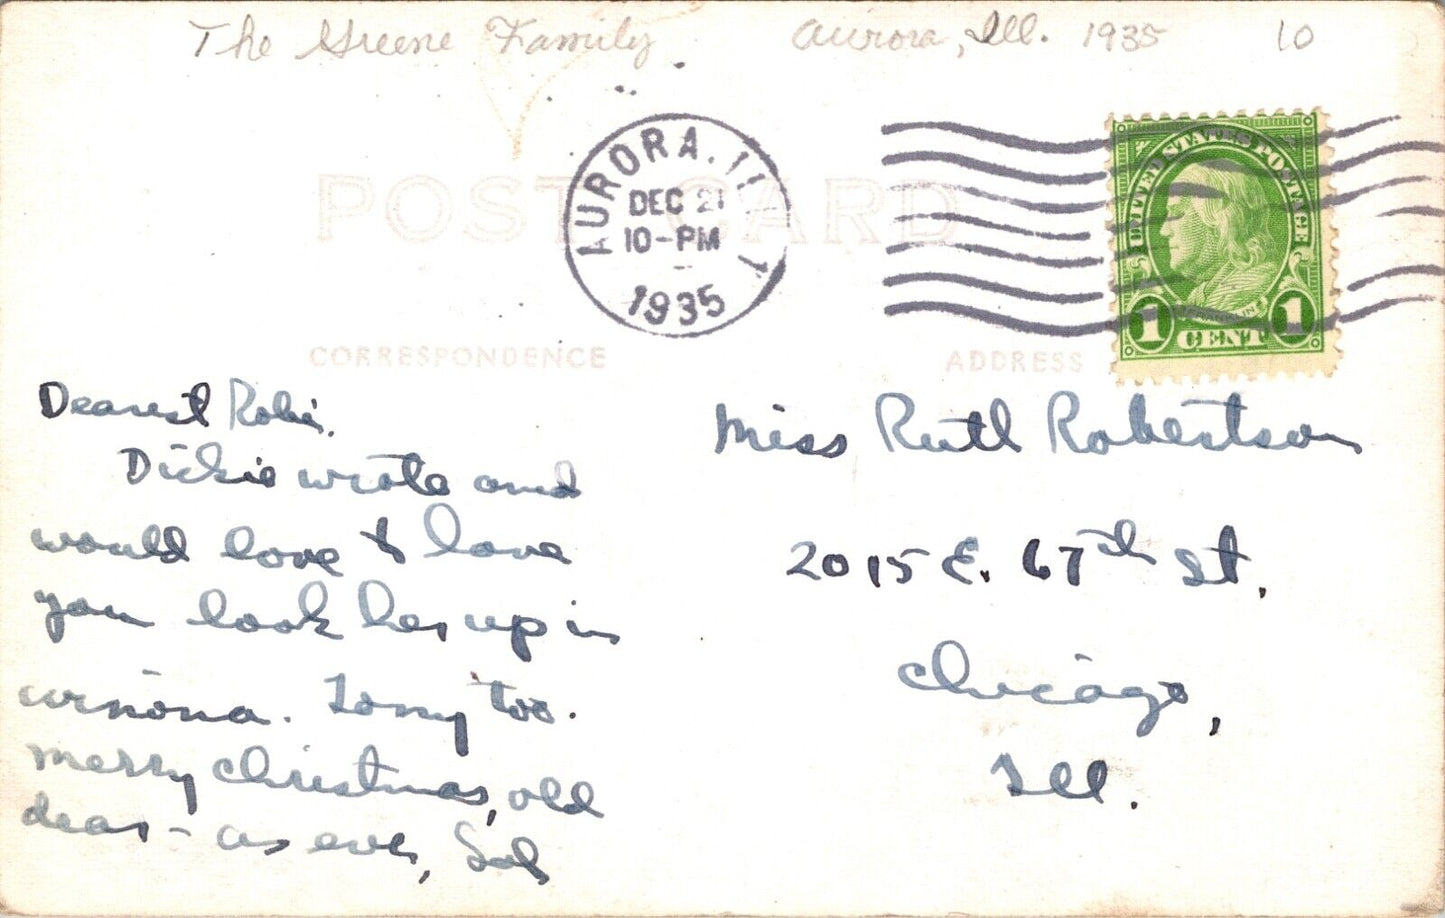 The Greene Family Aurora, Ill. 1935 10
AURORA, ILL
DEC 21
10-PM
1935
1
UNITED STATES POSTAGE
FRANKLIN
1 CENT 1
POST CARD
CORRESPONDENCE
ADDRESS
Dearest Robi.
Dickie wrote and
would love to have
you look her up in
winona. Tomy too.
merry christmas, old
dear - as ever, Sal
Miss Ruth Robertson
2015 E. 67th St.
Chicago,
Ill.